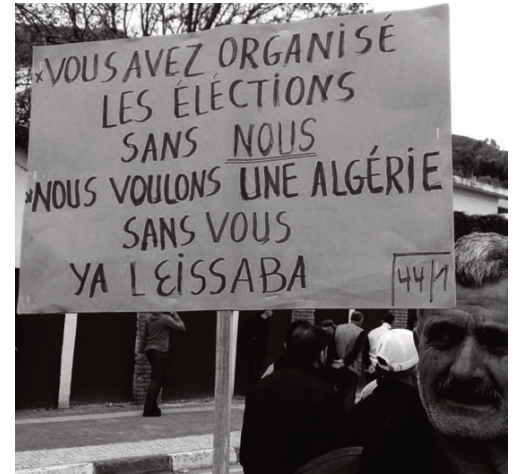 *VOUS AVEZ ORGANISÉ
LES ÉLÉCTIONS
SANS NOUS
*NOUS VOULONS UNE ALGÉRIE
SANS VOUS
YA LEISSABA
44/1